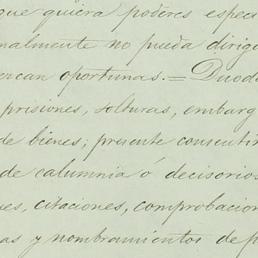 que quiera poderes especi
nalmente no pueda dirigi
ercan oportunas.= Duodé
prisiones, solturas, embarg
de bienes; presente consentim
de calumnia ó decisorios
es, citaciones, comprobacion
as y nombramientos de p